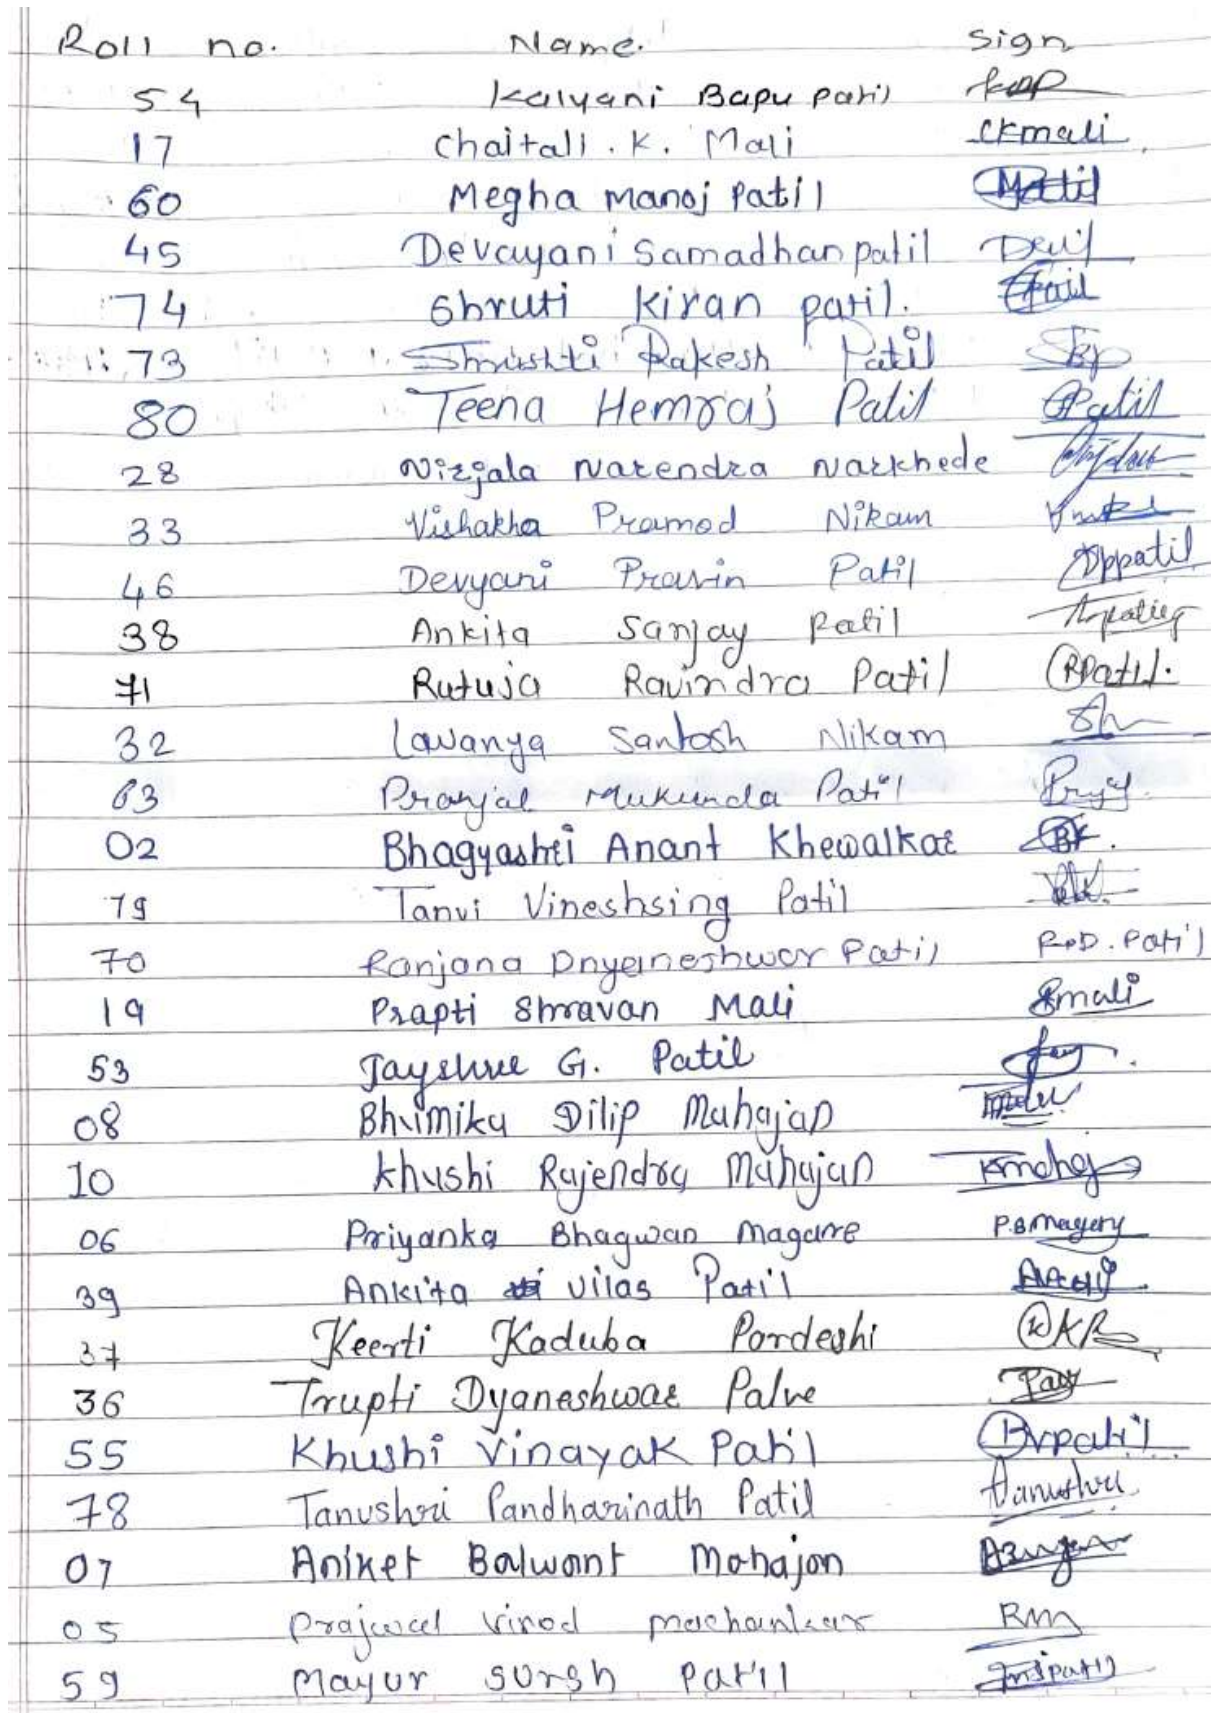 Roll no. Name. Sign
54 Kalyani Bapu patil
17 Chaitali . K. Mali ckmali
60 Megha manoj Patil Matil
45 Devayani Samadhan patil
74 Shruti Kiran patil.
73 Shrushti Rakesh Patil
80 Teena Hemraj Patil Patil
28 Nirjala Narendra Narkhede
33 Vishakha Pramod Nikam
46 Devyani Pravin Patil Dppatil
38 Ankita Sanjay Patil
71 Rutuja Ravindra Patil RPatil.
32 Lavanya Santosh Nikam
63 Pranjal Mukunda Patil
02 Bhagyashri Anant Khewalkar BK.
79 Tanvi Vineshsing Patil
70 Ranjana Dnyaneshwor Patil R.D. Patil
19 Prapti Shravan Mali Smali
53 Jayshree G. Patil
08 Bhumika Dilip Mahajan
10 Khushi Rajendra Mahajan
06 Priyanka Bhagwan Magare
39 Ankita Vilas Patil
37 Keerti Kaduba Pardeshi
36 Trupti Dyaneshwar Palve
55 Khushi Vinayak Patil
78 Tanushri Pandharinath Patil Tanushri
07 Aniket Balwant Mahajan
05 Prajwal Vinod
59 Mayur Sursh Patil